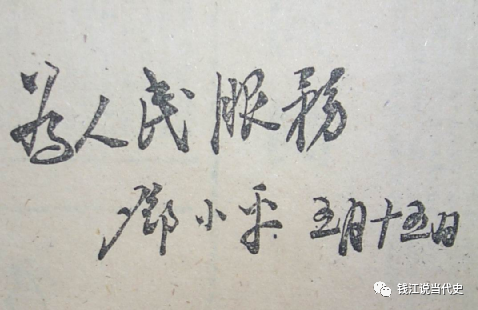 为人民服務
鄧小平 五月十五日
钱江说当代史